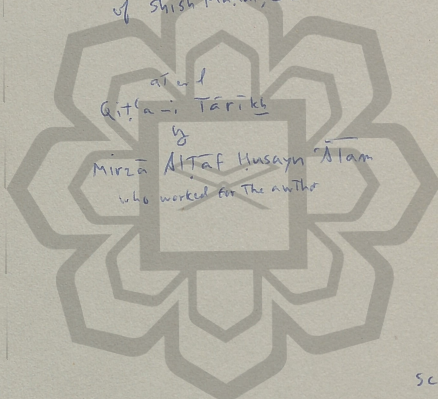 of Shish
at end
Qiṭ'a-i Tārīkh
by
Mirzā Alṭāf Ḥusayn 'Ālam
who worked for the author
Sc